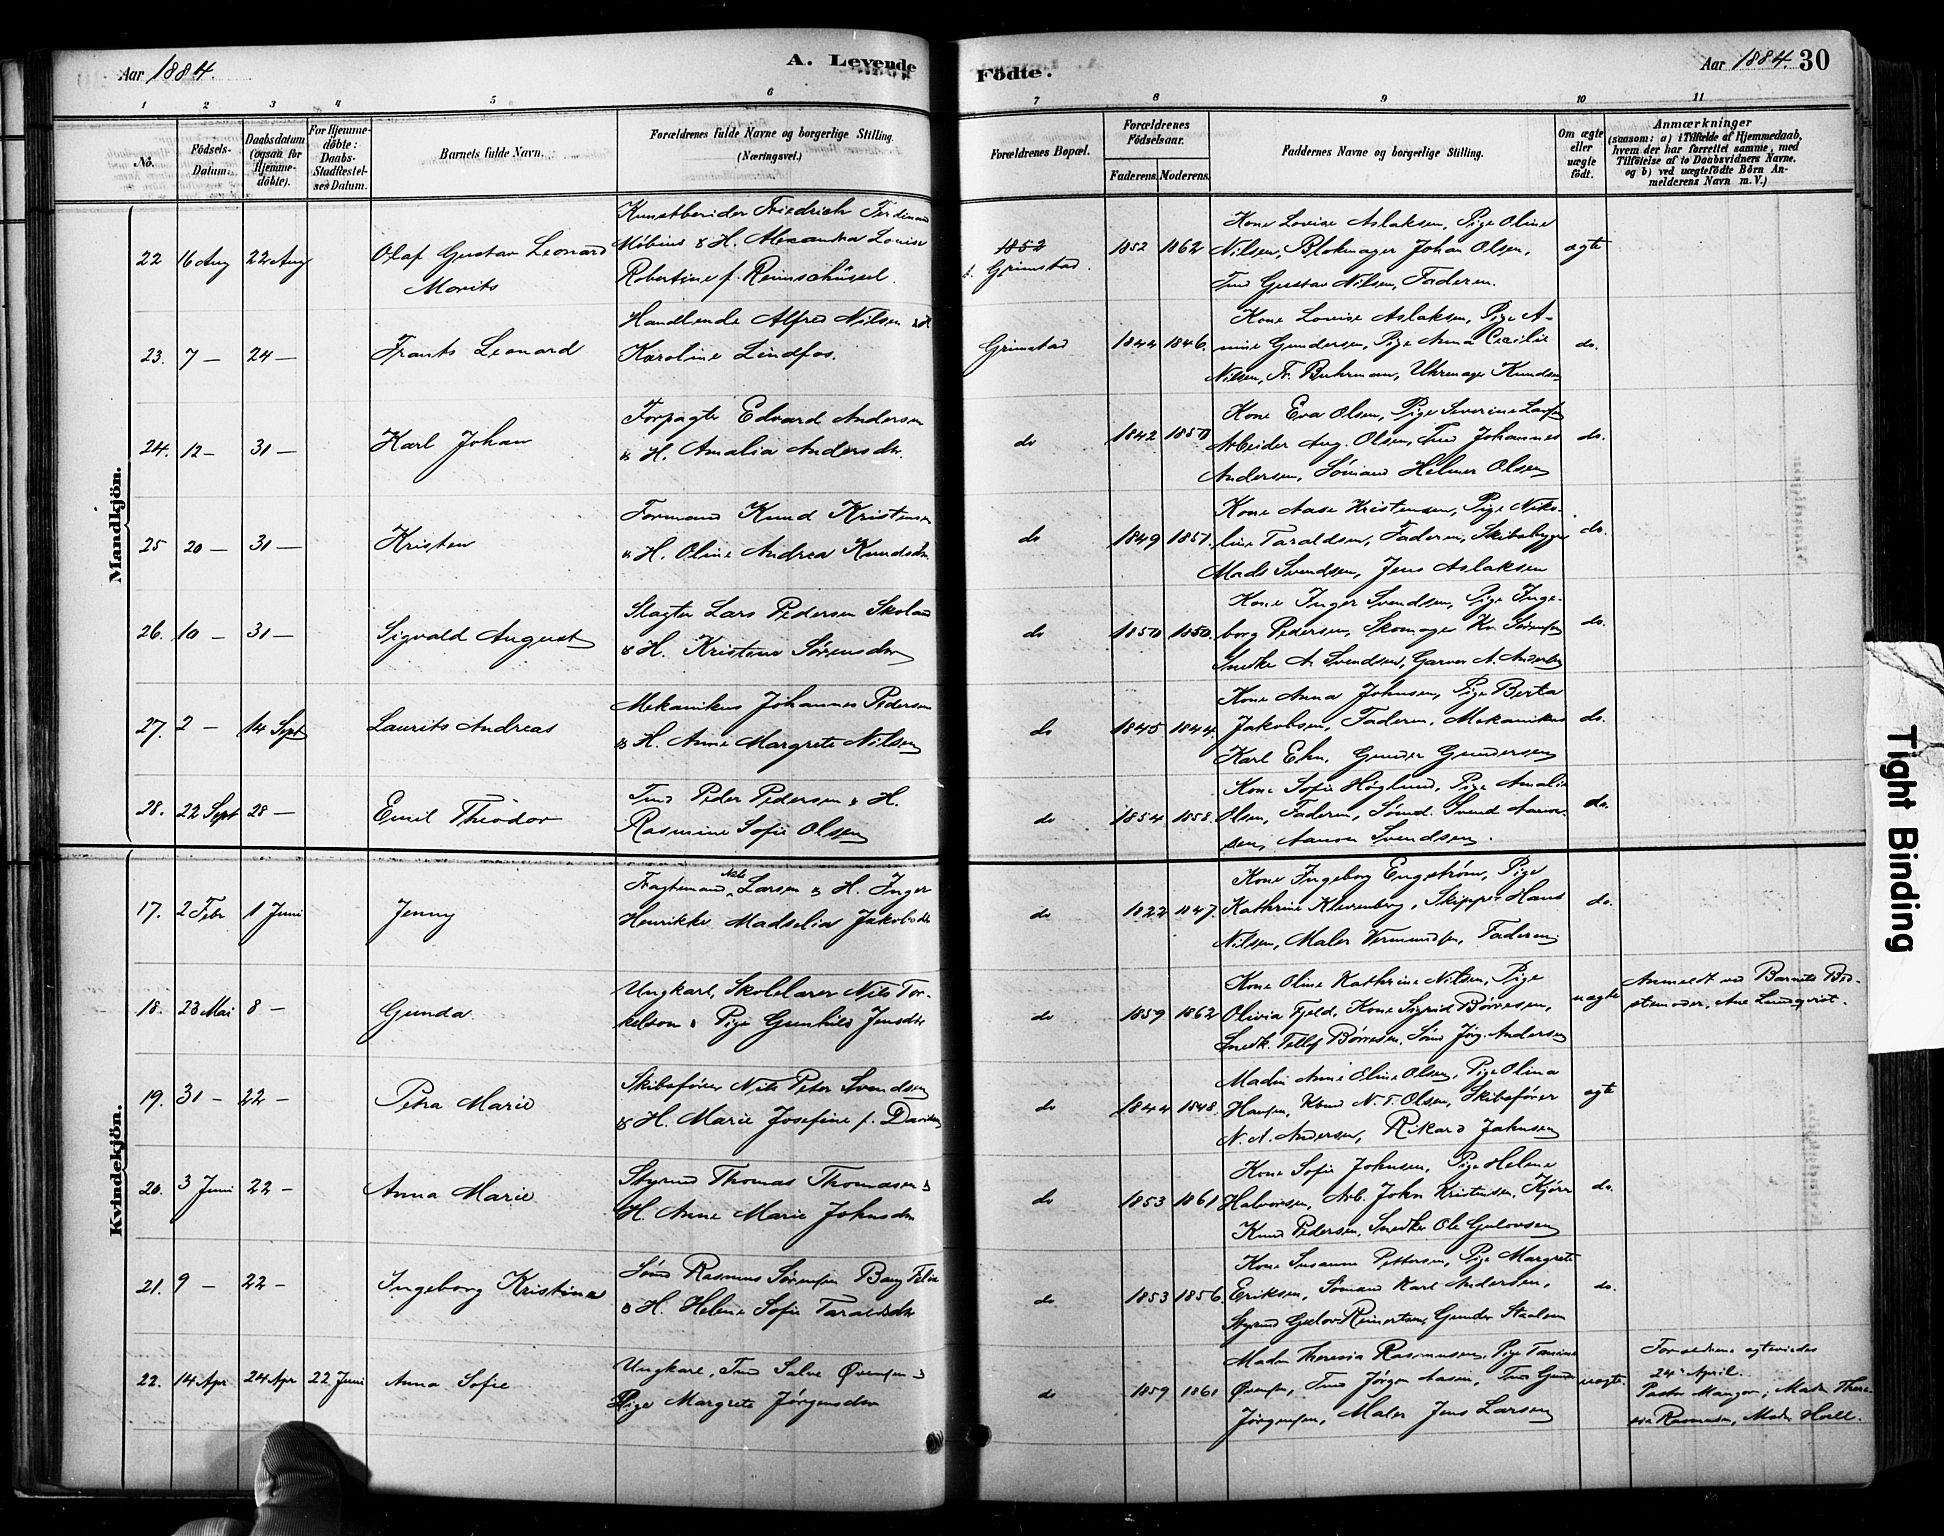 Aar 1884.
A. Levende
Födte.
Aar 1884. 30
1 2 3 4 5 6 7 8 9 10 11
No.
Födsels-Datum.
Daabsdatum (ogsaa for Hjemme-döbte).
For Hjemme-döbte: Daabs-Stadfestel-ses Datum.
Barnets fulde Navn.
Forældrenes fulde Navne og borgerlige Stilling.
(Næringsvei.)
Forældrenes Bopæl.
Forældrenes Födselsaar.
Faderens. Moderens.
Faddernes Navne og borgerlige Stilling.
Om ægte eller uægte födt.
Anmærkninger
(saasom: a) i Tilfælde af Hjemmedaab,
hvem der har forrettet samme, med
Tilföielse af to Daabsvidners Navne.
og b) ved uægtefödte Börn An-
melderens Navn m. V.)
Mandkjön.
22 16 Aug 22 Aug Olaf Gustav Leonard
Morits
Kunstberider Friedrich Ferdinand
Möbius & H. Alexandra Louise
Robertine f. Reimschüssel.
1852
Grimstad.
1852 1862
Kone Lovise Aslaksen, Pige Oline
Nilsen, Blokmager Johan Olsen,
Tmd Gustav Nilsen, Faderen.
ægte
23. 7 – 24 – Frants Leonard
Handlende Alfred Nilsen & H
Karoline Lindfos.
Grimstad
1844 1846.
Kone Lovise Aslaksen, Pige A-
mine Gundersen, Pige Anna Cecilie
Nilsen, Fr. Buhrman, Uhrmager Knudsen
do.
24. 12 – 31 – Karl Johan
Forpagter Edvard Andersen
& H. Amalia Andersdtr.
do
1842 1850
Kone Eva Olsen, Pige Severine
Arbeider Aug. Olsen, Tmd Johannes
Andersen, Sömand Helmer Olsen
do.
25 20 – 31 – Kristen
Formand Knud Kristensen
& H. Oline Andrea Knudsdtr
do
1849 1851.
Kone Aase Kristensen, Pige Niko-
line Taraldsen, Faderen, Skibsbygger
Mads Svendsen, Jens Aslaksen
do.
26. 10 – 31 – Sigvald August
Slagter Lars Pedersen Skoland
& H. Kristine Sörensdtr
do
1850 1850.
Kone Inger Svendsen, Pige Inge-
borg Pedersen, Skomager Kr. Sörensen
Snedker A. Svendsen, Garver A.
do.
27. 2 – 14 Sept Laurits Andreas
Mekanikus Johannes Pedersen
& H. Anne Margrete Nilsen
do
1845 1844.
Kone Anna Johnsen, Pige Berta
Jakobsen, Faderen, Mekanikus
Karl Ehn, Gunder Gundersen
do.
28. 22 Sept 28 – Emil Theodor
Tmd Peder Pedersen & H.
Rasmine Sofie Olsen
do
1854 1858.
Kone Sofie Höglund, Pige Amalie
Olsen, Faderen, Sömd. Svend Aaron-
sen, Aaron Svendsen.
do.
Kvindekjön.
17. 2 Febr 1 Juni Jenny
Fragtemand Nils Larsen & H. Inger
Henrikke Madselia Jakobsdtr
do
1822 1847.
Kone Ingeborg Engström, Pige
Kathrine Klevenberg, Skipper Hans
Nilsen, Maler Vermundsen, Faderen.
do.
18. 23 Mai 8 – Gunda.
Ungkarl, Skolelærer Nils Tor-
kelson & Pige Gunhild Jensdtr
do
1859 1862
Kone Oline Kathrine Nilsen, Pige
Olivia Fjeld, Kone Sigrid Börresen,
Snedk. Tellef Börresen, Sömd Jörg. Andersen
uægte
Anmeldt ved Barnets Bed-
stemoder, Ane Lundqvist.
19. 31 – 22 – Petra Marie
Skibsförer Nils Peter Svendsen
& H. Marie Josefine f. Davidsen
do
1844 1848.
Madm Anne Eline Olsen, Pige Olina
Hansen, N. T. Olsen, Skibsförer
N. A. Andersen, Rikard Jahnsen
ægte
20. 3 Juni 22 – Anna Marie
Styrmd Thomas Thomasen &
H. Anne Marie Johnsdtr
do
1853 1861
Kone Sofie Johnsen, Pige Helene
Halvorsen, Arb. John Kristensen, Kjörer
Knud Pedersen, Snedker Ole Gulovsen
do.
21. 9 – 22 – Ingeborg Kristine
Sömd Rasmus Sörensen Bang
& H. Helene Sofie Taraldsdtr
do
1853 1856.
Kone Susanne Pettersen, Pige Margrete
Eriksen, Sömand Karl Andersen,
Styrmd Gulov Reinertsen, Gunder
do.
22. 14 Apr 24 Apr 22 Juni Anna Sofie
Ungkarl, Tmd Salve Övensen &
Pige Margrete Jörgensdtr
do
1859 1861
Madm Theresia Rasmussen, Pige Tomine
Övensen, Tmd Jörgen Aasen, Tmd Gunder
Jörgensen, Maler Jens Larsen
uægte.
Forældrene ægteviedes
24de April.
Pastor Mangor, Madm There-
sia Rasmussen, Madm Holl.
Tight Binding